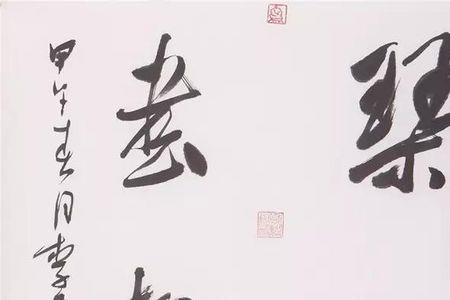 琴
書
甲午春月李